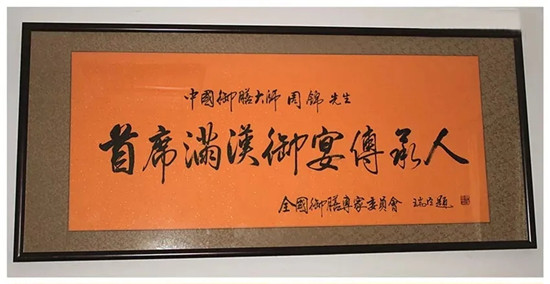 中國御膳大师 周錦 先生
首席满漢御宴傳承人
全國御膳專家委員會